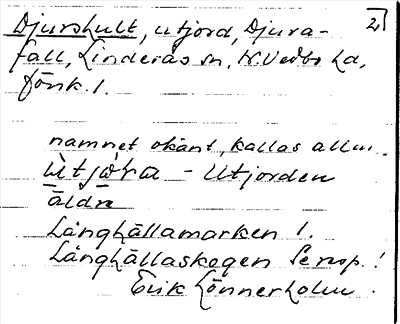 Djurshult, utjord, Djura- 2
fall, Linderås sn, N. Vedbo hd,
Jönk. l.
namnet okänt, kallas allm.
ùtjǫ̀ɽa - Utjorden
äldre
Långhällamarken l.
Långhällaskogen Se rep.!
Erik Lönnerholm